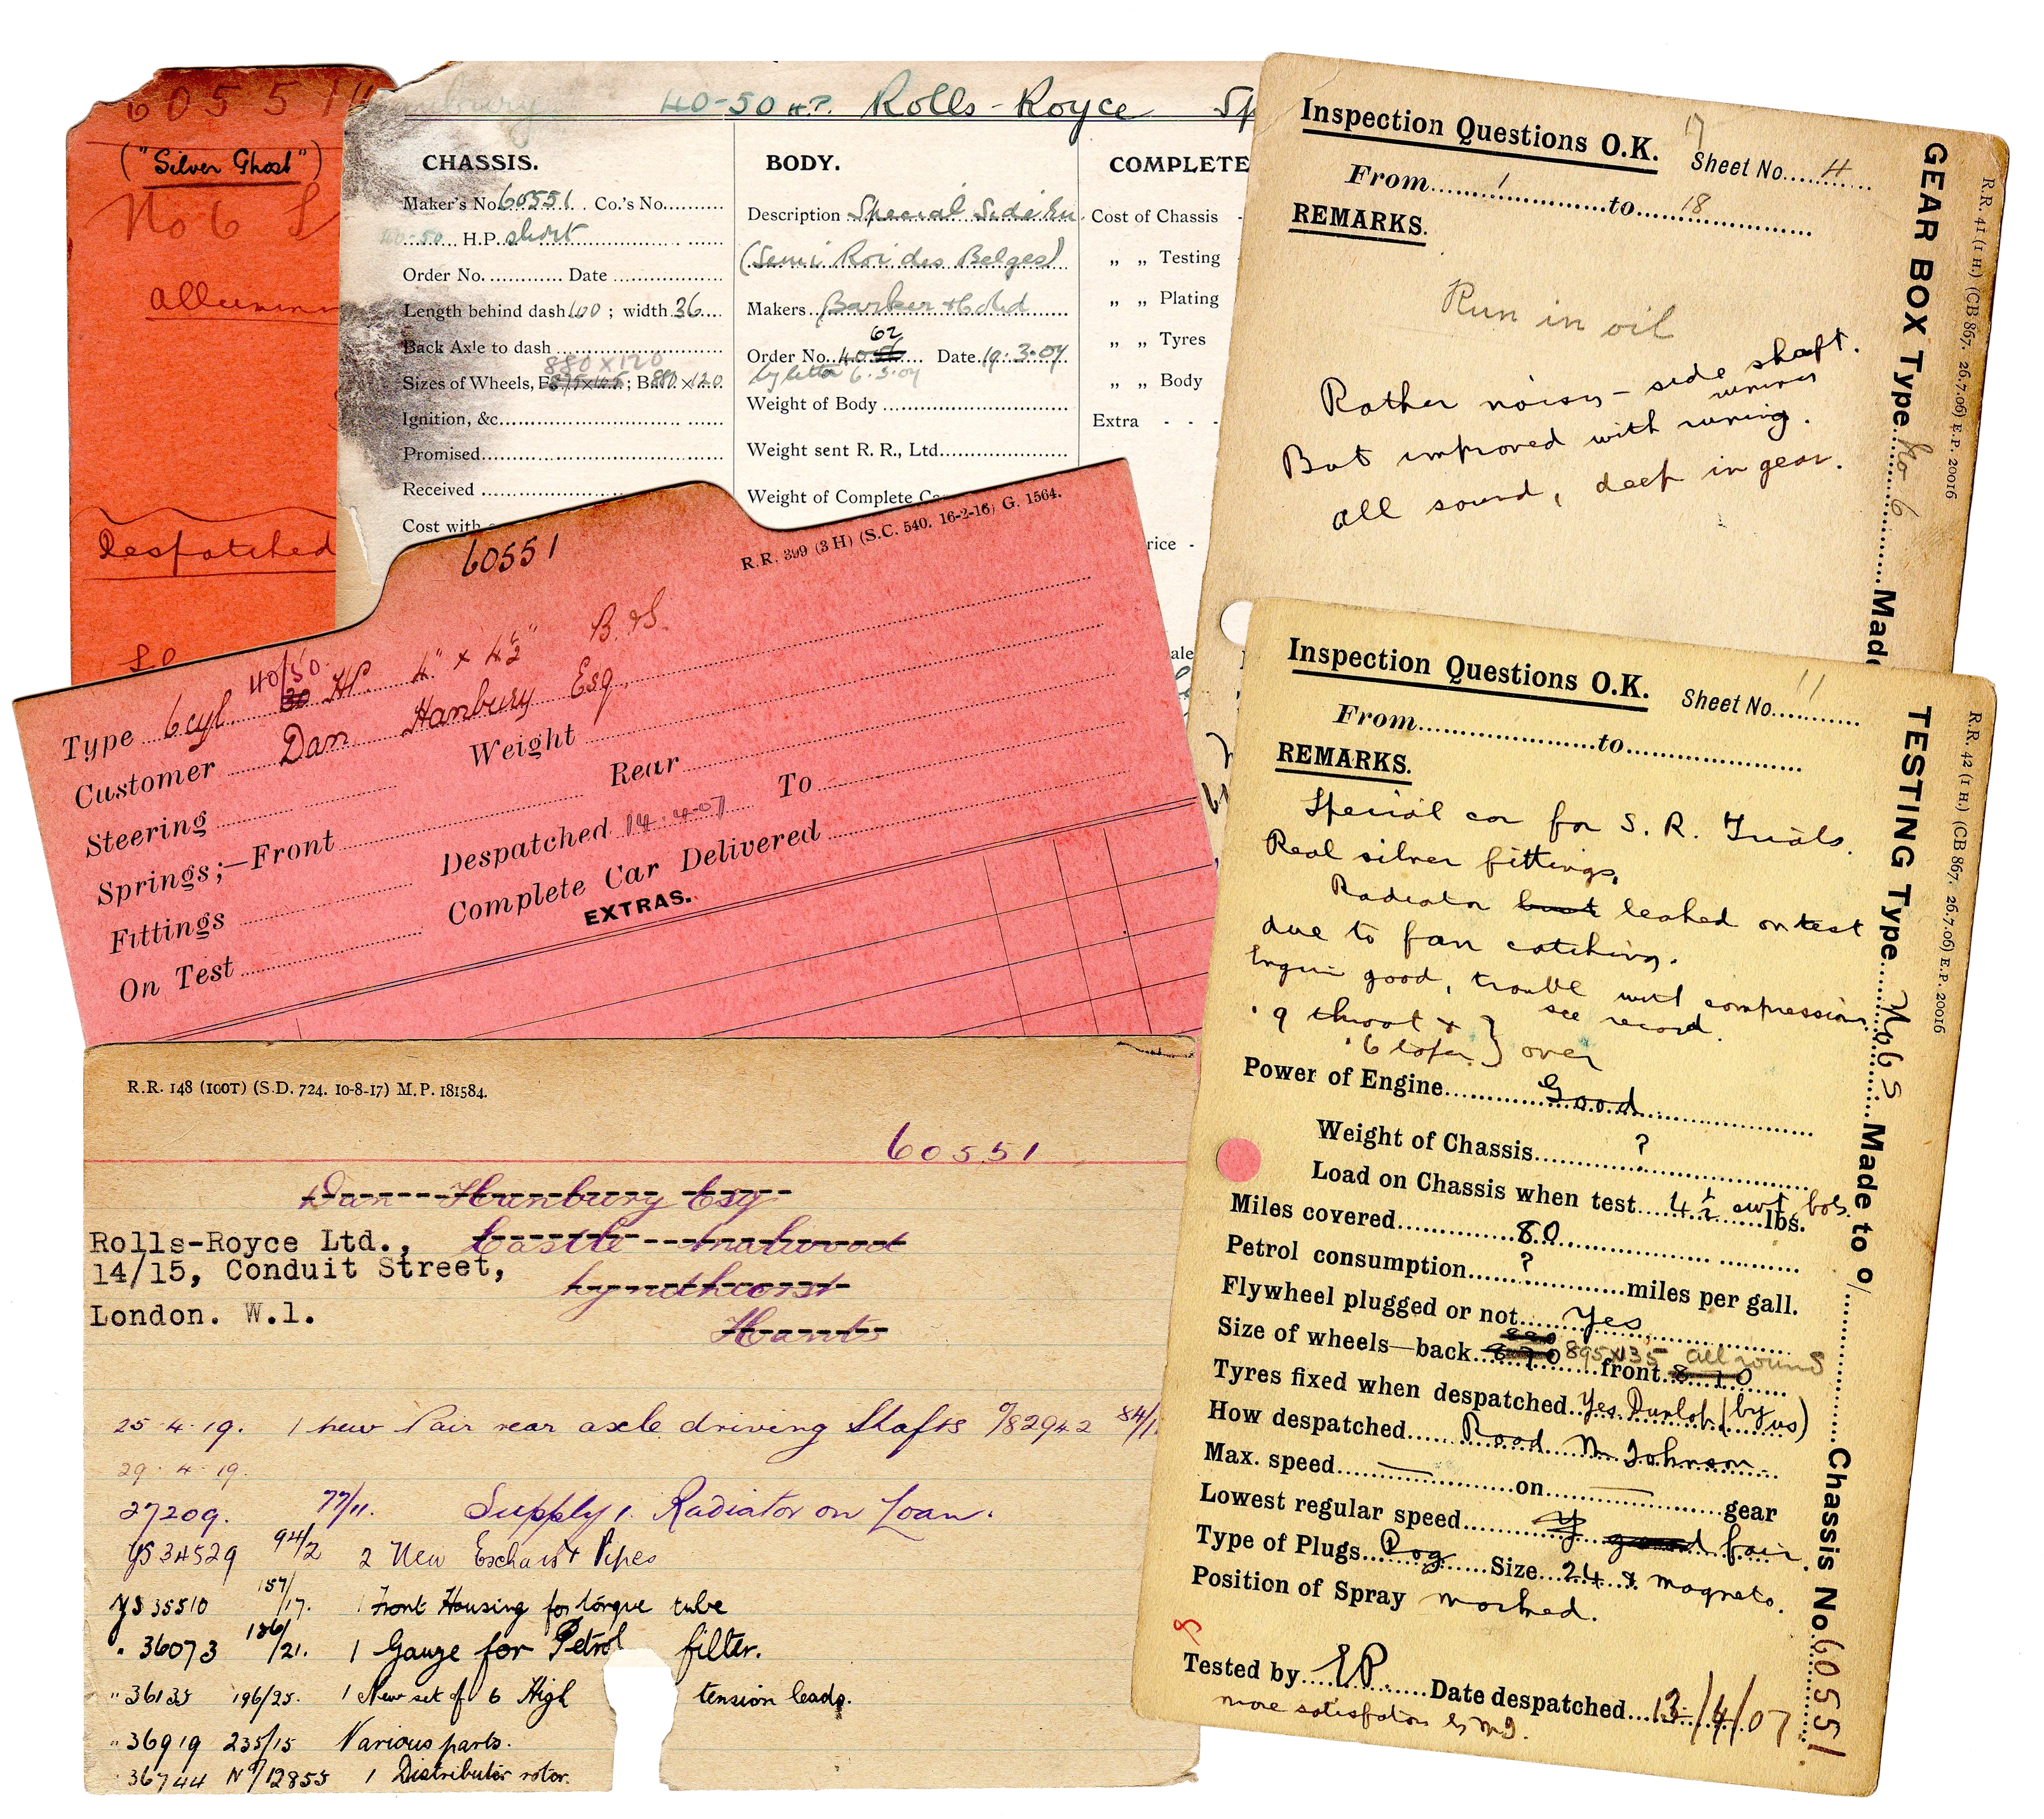 60551
("Silver Ghost")
No 6
Despatched
40-50 H.P. Rolls-Royce Sp
CHASSIS.
Maker's No. 60551 Co.'s No.
40-50 H.P. short
Order No. Date
Length behind dash 100 ; width 36
Back Axle to dash
880 x 120
Sizes of Wheels, F 875x105; B 880 x 120
Ignition, &c.
Promised
Received
Cost with
BODY.
Description Special Side
(Semi Roi des Belges)
Makers Barker
62
Order No. Date 19.3.07
by letter 6.3.07
Weight of Body
Weight sent R. R., Ltd.
Weight of Complete
COMPLETE
Cost of Chassis -
„ „ Testing
„ „ Plating
„ „ Tyres
„ „ Body
Extra - - -
rice -
ale
Inspection Questions O.K. 17
Sheet No. 4
From 1 to 18
REMARKS.
Run in oil
Rather noisy - side shaft.
running
But improved with runing.
All sound, deep in gear.
GEAR BOX Type No 6 Made
R.R. 41 (1 H.) (CB 867. 26.7.06) E.P. 20016
60551
R.R. 399 (3 H) (S.C. 540. 16-2-16) G. 1564.
Type 6 cyl 40/50 30 HP. 4" x 4½" B. & S.
Customer Dan Hanbury Esq
Steering Weight
Springs;—Front Rear
Fittings Despatched 14.4.07 To
On Test Complete Car Delivered
EXTRAS.
R.R. 148 (100T) (S.D. 724. 10-8-17) M.P. 181584.
60551
Dan Hanbury Esq
Castle Malwood
Lyndhurst
Hants
Rolls-Royce Ltd.,
14/15, Conduit Street,
London. W.1.
25.4.19. 1 new Pair rear axle driving Shafts o/82942 84/1
29.4.19.
27209. 77/11. Supply 1. Radiator on Loan.
YS 34529 94/2 2 New Exhaust Pipes
YS 35510 157/17. 1 Front Housing for torque tube
" 36073 186/21. 1 Gauze for Petrol filter.
" 36135 196/25. 1 New set of 6 High tension leads.
" 36919 235/15 Various parts.
36744 No/12855 1 Distributor rotor.
Inspection Questions O.K. Sheet No. 11
From to
REMARKS.
Special car for S. R. Trials.
Real silver fittings.
Radiator burst leaked on test
due to fan catching.
Engine good, trouble with compression
see record.
.9 throat & } over
.6 taper
Power of Engine Good
Weight of Chassis ?
Load on Chassis when test 4½ cwt lbs.
Miles covered 80
Petrol consumption ? miles per gall.
Flywheel plugged or not Yes
Size of wheels—back 870 895x135 all round front 810
Tyres fixed when despatched Yes Dunlop (by us)
How despatched Road Mr Johnson
Max. speed — on — gear
Lowest regular speed good fair
Type of Plugs Pog Size 24 & magneto.
Position of Spray marked.
Tested by EP. Date despatched 13/4/07
more satisfaction
TESTING Type No 6 S Made to o/ Chassis No. 60551.
R.R. 42 (1 H.) (CB 867. 26.7.06) E.P. 20016